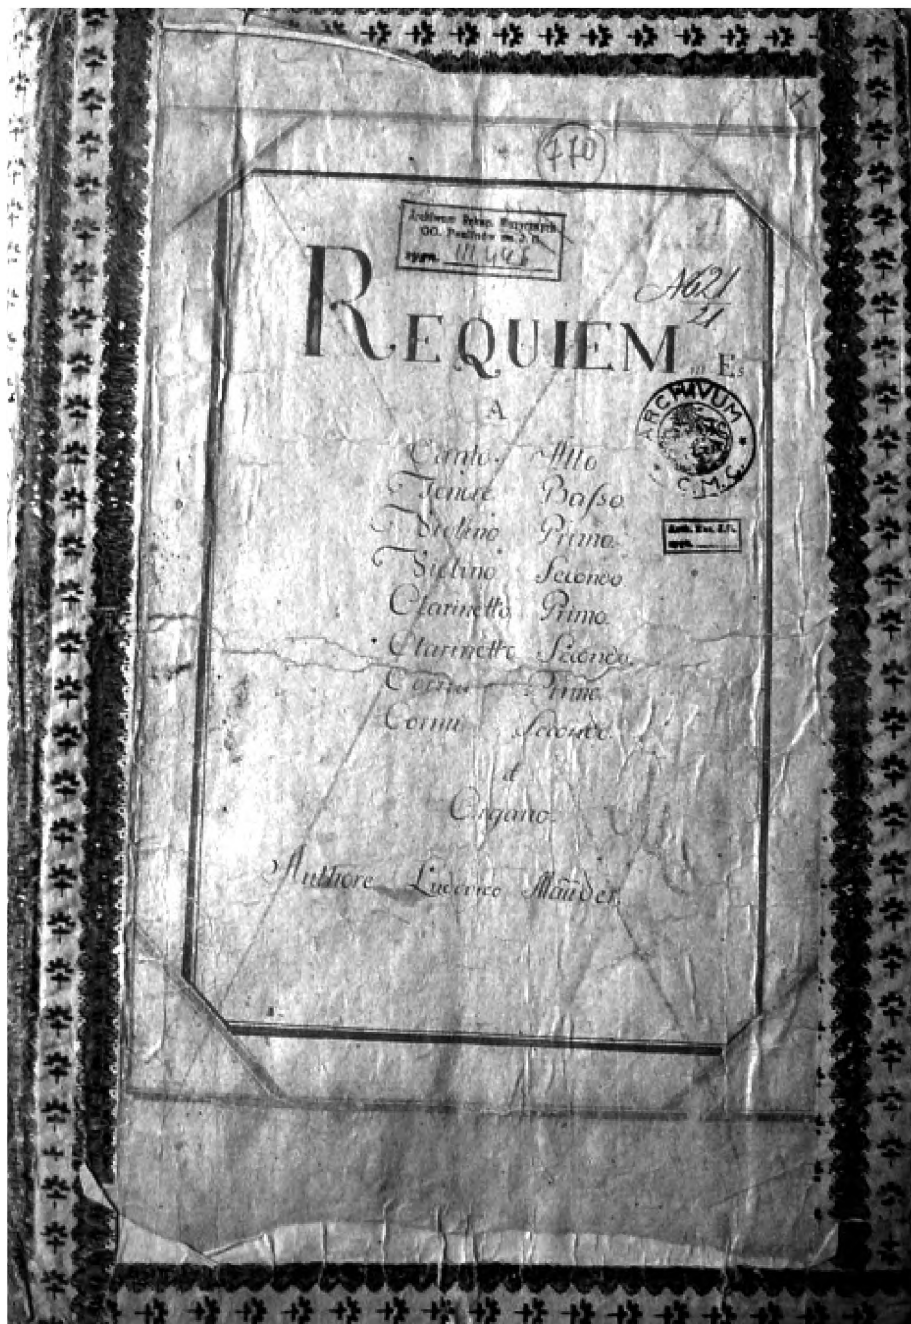 770
Archiwum Rękop. Muzycznych
OO. Paulinów
sygn. III
A621
21
REQUIEM in Es
A
Canto Alto
Tenore Baſso
Violino Primo
Violino Secondo
Clarinetto Primo.
Clarinetto Secondo.
Cornu Primo.
Cornu Secondo.
et
Organo.
Authore Ludovico Mauder.
ARCHIVUM
C.M.C.
sygn.